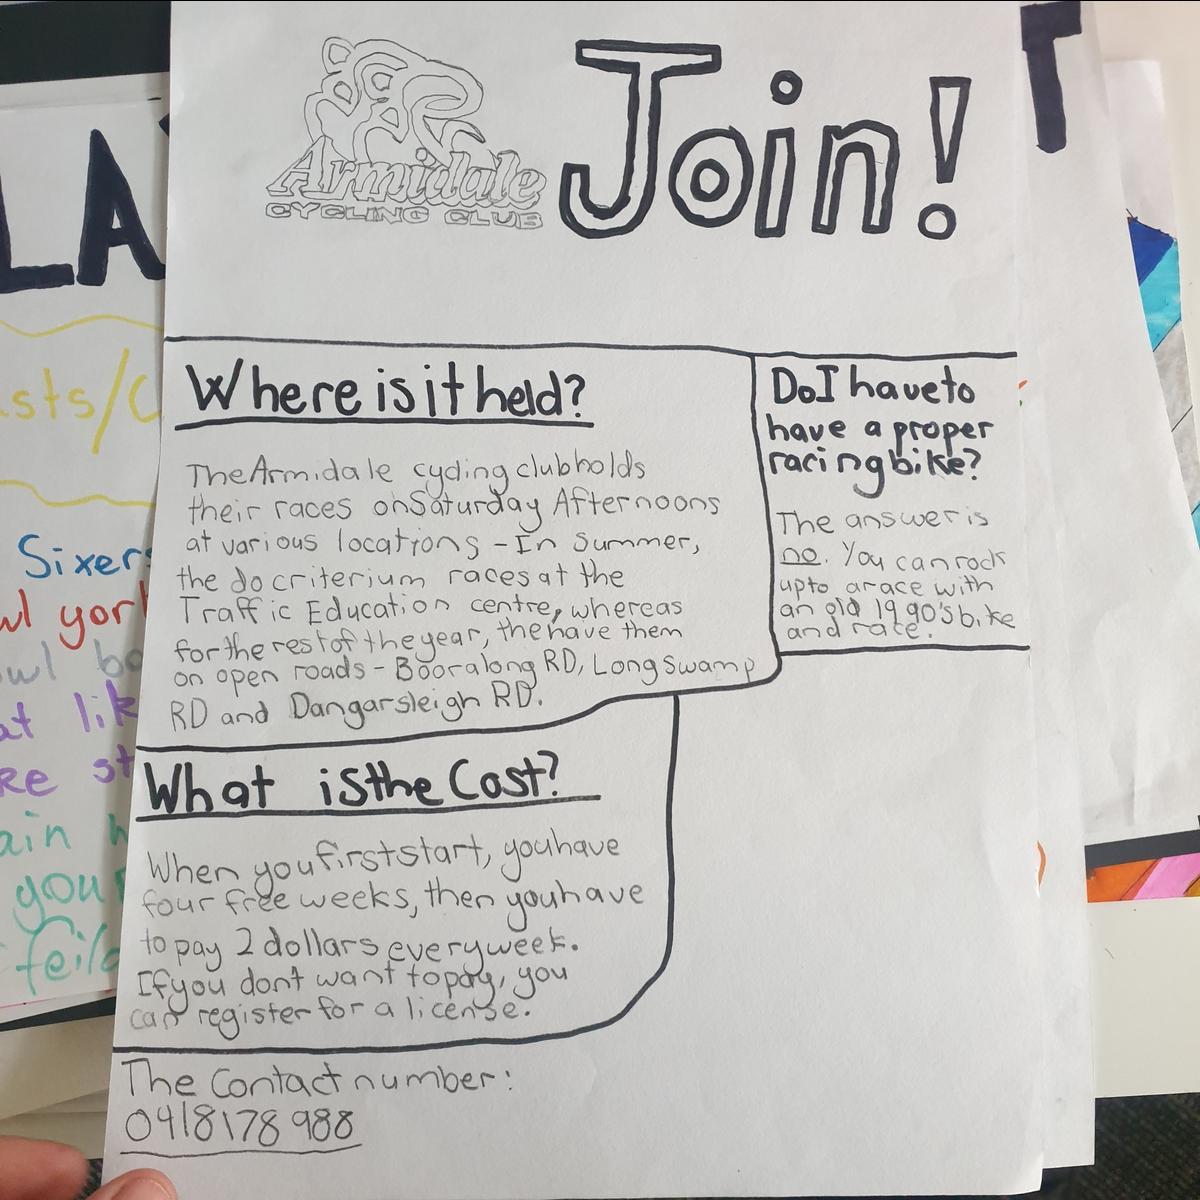 Armidale
CYCLING CLUB
Join!
T
LA
Where is it held?
The Armidale cycling club holds
their races on Saturday Afternoons
at various locations - In summer,
the do criterium races at the
Traffic Education centre, whereas
for the rest of the year, the have them
on open roads - Booralong RD, Long swamp
RD and Dangarsleigh RD.
Do I have to
have a proper
racing bike?
The answer is
no. You can rock
up to a race with
an old 1990's bike
and race.
What is the Cost?
When you first start, you have
four free weeks, then you have
to pay 2 dollars every week.
If you dont want to pay, you
can register for a license.
The Contact number:
0418178 988
sts/C
Sixers
wl york
owl bo
at lik
re st
ain h
you
feild